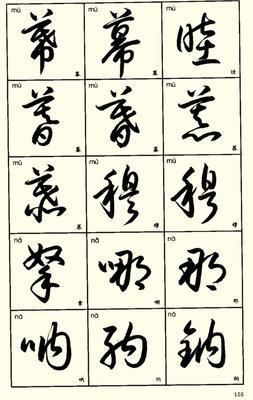 mù mù mù
幕 幕 睦
幕 幕 睦
mù mù mù
暮 暮 慕
暮 暮 慕
mù mù mù
慕 穆 穆
慕 穆 穆
拏 哪 那
哪 那
呐 纳 钠
呐 纳 钠
155